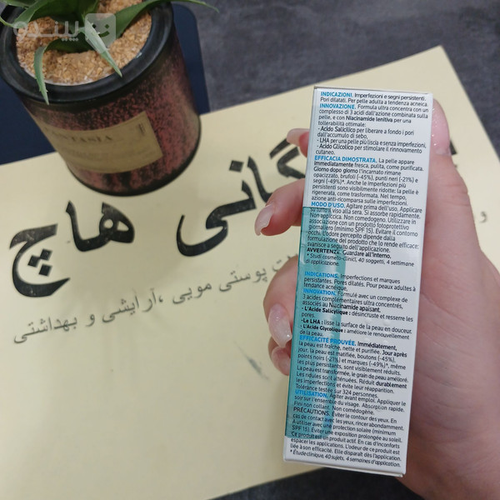 پیندو
INDICAZIONI. Imperfezioni e segni persistenti.
Pori dilatati. Per pelle adulta a tendenza acneica.
INNOVAZIONE. Formula ultra concentrata con un
complesso di 3 acidi dall'azione combinata sulla
pelle, e con Niacinamide lenitiva per una
tollerabilità ottimale:
- Acido Salicilico per liberare a fondo i pori
dall'accumulo di sebo,
- LHA per una pelle più liscia e senza imperfezioni,
- Acido Glicolico per stimolare il rinnovamento
cutaneo.
EFFICACIA DIMOSTRATA. La pelle appare
immediatamente fresca, pulita, come purificata.
Giorno dopo giorno l'incarnato rimane
opacizzato, brufoli (-45%), punti neri (-21%) e
segni (-49%)*. Anche le imperfezioni più
persistenti sono visibilmente ridotte: la pelle è
trasformata, la grana perfezionata. Nel tempo,
azione anti-ricomparsa sulle imperfezioni.
MODO D'USO. Agitare prima dell'uso. Applicare
sul viso alla sera. Si assorbe rapidamente.
Non appiccica. Non comedogeno. Utilizzare in
associazione con un prodotto fotoprotettivo
giornaliero (minimo SPF 15). Evitare il contorno
occhi. L'odore percepito dipende dalla
formulazione del prodotto che lo rende efficace:
svanisce a seguito dell'applicazione.
AVVERTENZA. Guardare all'interno.
* Studi cosmeto-clinici, 40 soggetti, 4 settimane
di applicazione.
INDICATIONS. Imperfections et marques
persistantes. Pores dilatés. Pour peaux adultes à
tendance acnéique.
INNOVATION. Formule avec un complexe de
3 acides complémentaires ultra concentrés,
associés au Niacinamide apaisant.
- L'Acide Salicylique : désincruste et resserre les
pores.
- La LHA : lisse la surface de la peau en douceur.
- L'Acide Glycolique : améliore le renouvellement
de la peau.
EFFICACITÉ PROUVÉE. Immédiatement,
la peau est fraîche, nette et purifiée. Jour après
jour, la peau est matifiée, boutons (-45%),
points noirs (-21%) et marques (-49%)*, même
les plus persistants, sont visiblement réduits.
La peau est transformée, le grain de peau amélioré.
Les ridules sont atténuées. Réduit durablement
les imperfections et évite leur réapparition.
Tolérance testée sur 324 personnes.
UTILISATION. Agiter avant emploi. Appliquer le
soir sur l'ensemble du visage. Absorption rapide.
Fini non collant. Non comédogène.
PRÉCAUTIONS. Éviter le contour des yeux. En
cas de contact avec les yeux, rincer abondamment.
À utiliser avec une protection solaire (minimum
SPF 15). Éviter une exposition prolongée au soleil.
Ce produit est un produit actif. En cas d'inconforts
espacer les applications. L'odeur de ce produit est
liée à son efficacité. Elle disparaît dès l'application.
* Étude clinique, 40 sujets, 4 semaines d'application.
گانی هاچ
ت پوستی مویی ،آرایشی و بهداشتی